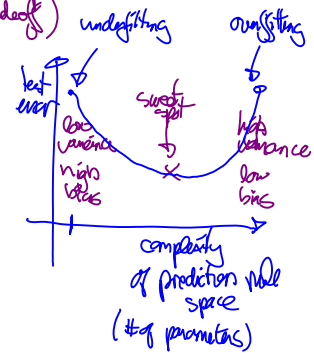 deoff)
underfitting
overfitting
test
error
sweet
spot
low
variance
high
bias
high
variance
low
bias
complexity
of prediction rule
space
(# of parameters)